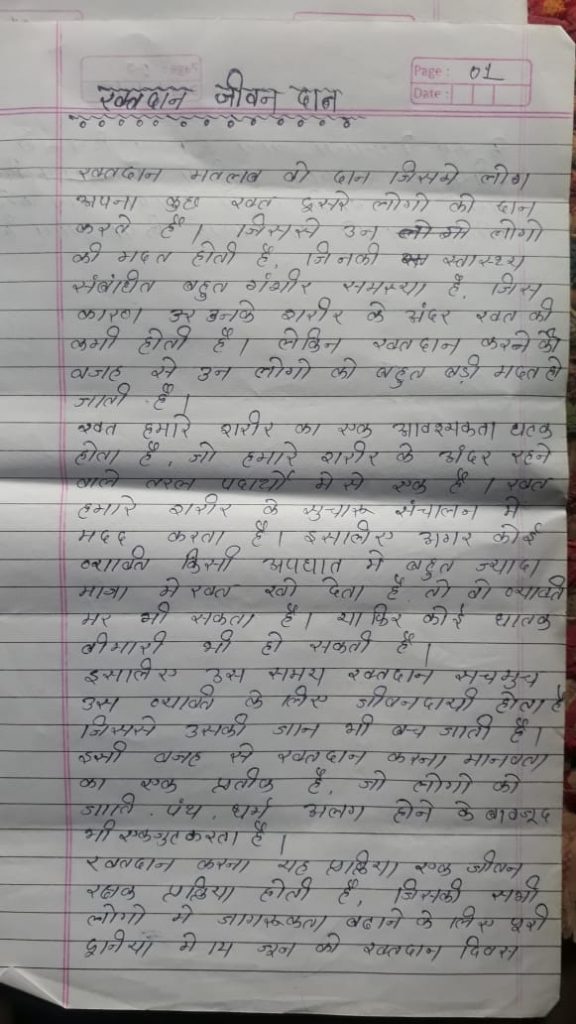 Page: 01
Date:
रक्तदान जीवन दान
रक्तदान मतलब वो दान जिसमे लोग
अपना कुछ रक्त दुसरे लोगो को दान
करते है। जिससे उन लोगो
की मदत होती है, जिनकी स्वास्थ्य
संबंधीत बहुत गंभीर समस्या है, जिस
कारण उनके शरीर के अंदर रक्त की
कमी होती है। लेकिन रक्तदान करने की
वजह से उन लोगो को बहुत बड़ी मदत हो
जाती है।
रक्त हमारे शरीर का एक आवश्यकता घटक
होता है, जो हमारे शरीर के अंदर रहने
वाले तरल पदार्थो मे से एक है। रक्त
हमारे शरीर के सुचारू संचालन मे
मदद करता है। इसलिए अगर कोई
व्यक्ति किसी अपघात मे बहुत ज्यादा
मात्रा मे रक्त खो देता है तो वो व्यक्ति
मर भी सकता है। या फिर कोई घातक
बीमारी भी हो सकती है।
इसलिए उस समय रक्तदान सचमुच
उस व्यक्ति के लिए जीवनदायी होता है
जिससे उसकी जान भी बच जाती है।
इसी वजह से रक्तदान करना मानवता
का एक प्रतीक है, जो लोगो को
जाति, पंथ, धर्म अलग होने के बावजूद
भी एकजुट करता है।
रक्तदान करना यह प्रक्रिया एक जीवन
रक्षक प्रक्रिया होती है, जिसकी सभी
लोगो मे जागरूकता बढाने के लिए पूरी
दूनियाँ मे 14 जून को रक्तदान दिवस